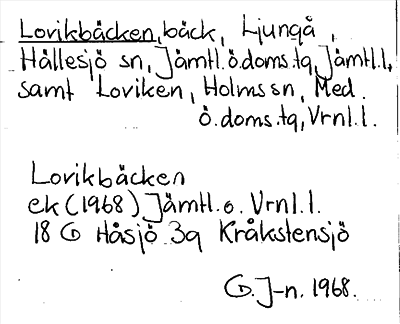 Lovikbäcken, bäck, Ljungå,
Hållesjö sn, Jämtl.ö.doms.tg, Jämtl.l,
samt Loviken, Holms sn, Med.
ö.doms.tg, Vrnl.l.
Lovikbäcken
ek (1968) Jämtl. o. Vrnl.l.
18 G Håsjö 3g Kråkstensjö
G. J-n. 1968.